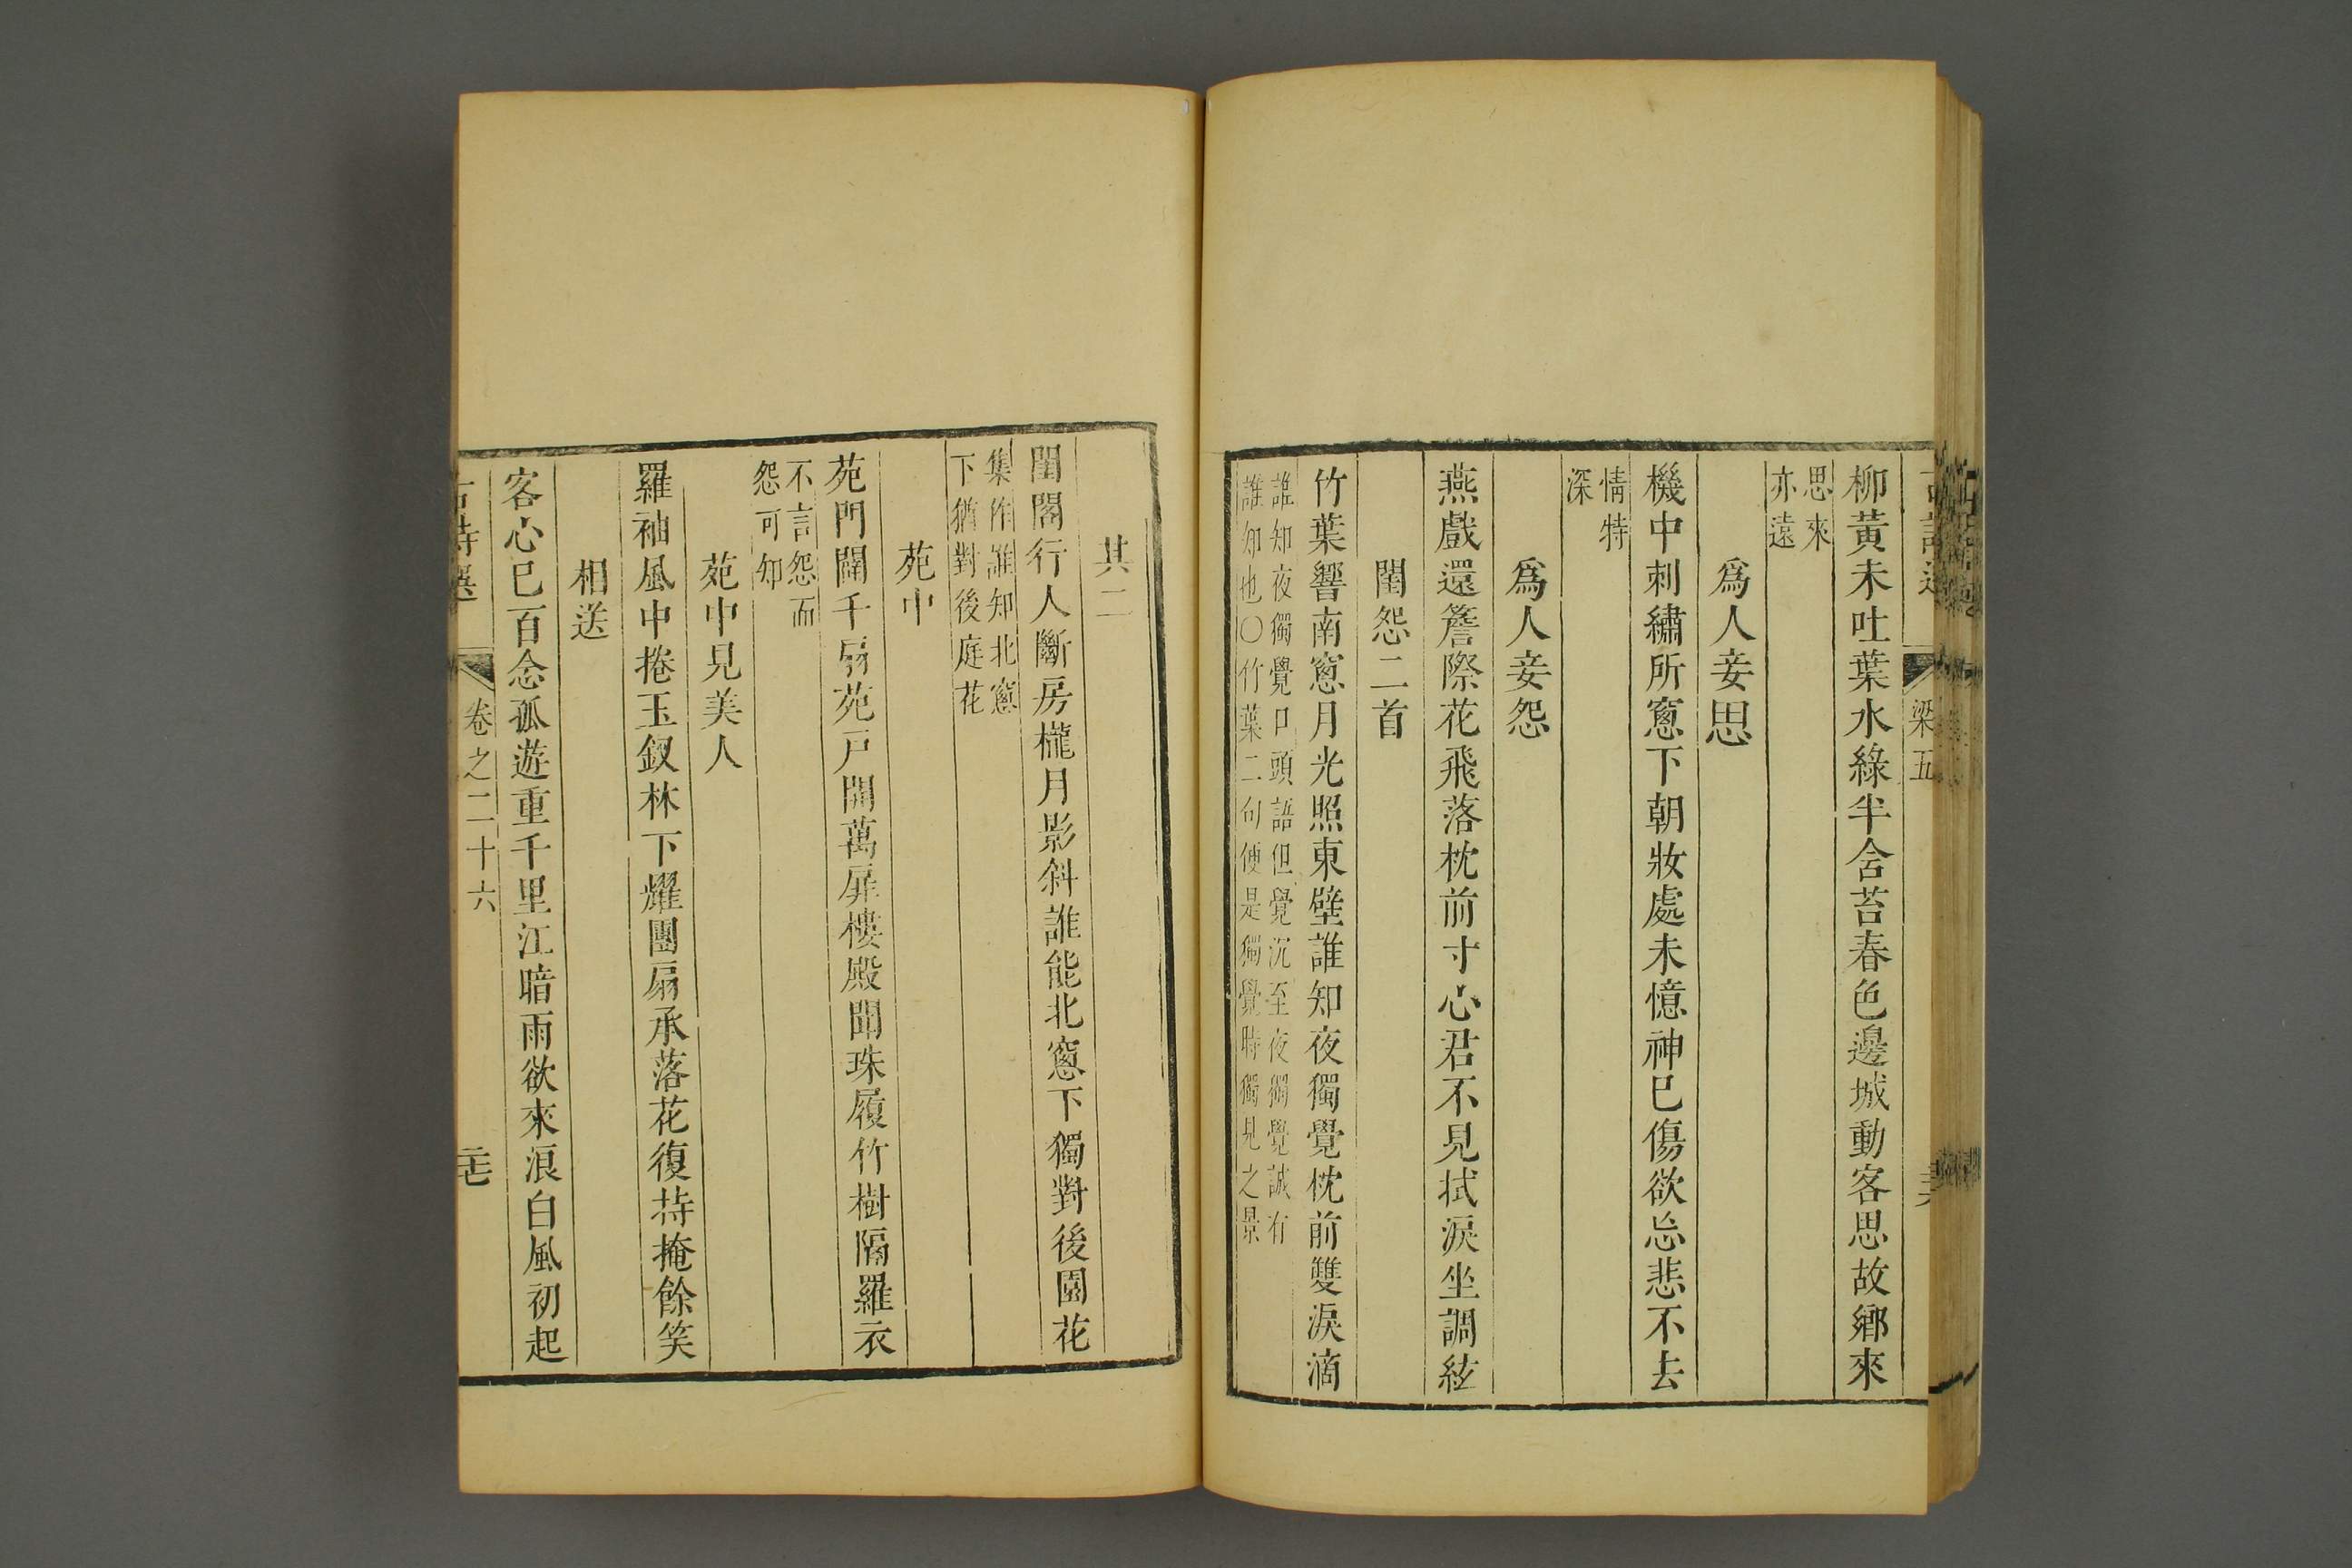 梁五
柳黃未吐葉水綠半含苔春色邊城動客思故鄉來
思來
亦遠
爲人妾思
機中刺繡所窓下朝妝處未憶神已傷欲忘悲不去
情特
深
爲人妾怨
燕戲還簷際花飛落枕前寸心君不見拭淚坐調絃
閨怨二首
竹葉響南窓月光照東壁誰知夜獨覺枕前雙淚滴
誰知夜獨覺口頭語但覺沉至夜獨覺誠有
誰知也〇竹葉二句便是獨覺時獨見之景
其二
閨閣行人斷房櫳月影斜誰能北窓下獨對後園花
集作誰知北窓
下猶對後庭花
苑中
苑門闢千扇苑戸開萬扉樓殿聞珠履竹樹隔羅衣
不言怨而
怨可知
苑中見美人
羅袖風中捲玉釵林下耀團扇承落花復持掩餘笑
相送
客心已百念孤遊重千里江暗雨欲來浪白風初起
古詩選 卷之二十六